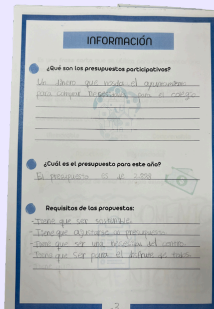 INFORMACIÓN
¿Qué son los presupuestos participativos?
Un dinero que ayuda el ayuntamiento
para comprar
¿Cuál es el presupuesto para este año?
El presupuesto es de
Requisitos de las propuestas:
-Tiene que ser
-Tiene que ajustarse al presupuesto
-Tiene que ser una necesidad del
-Tiene que ser para el disfrute de todos